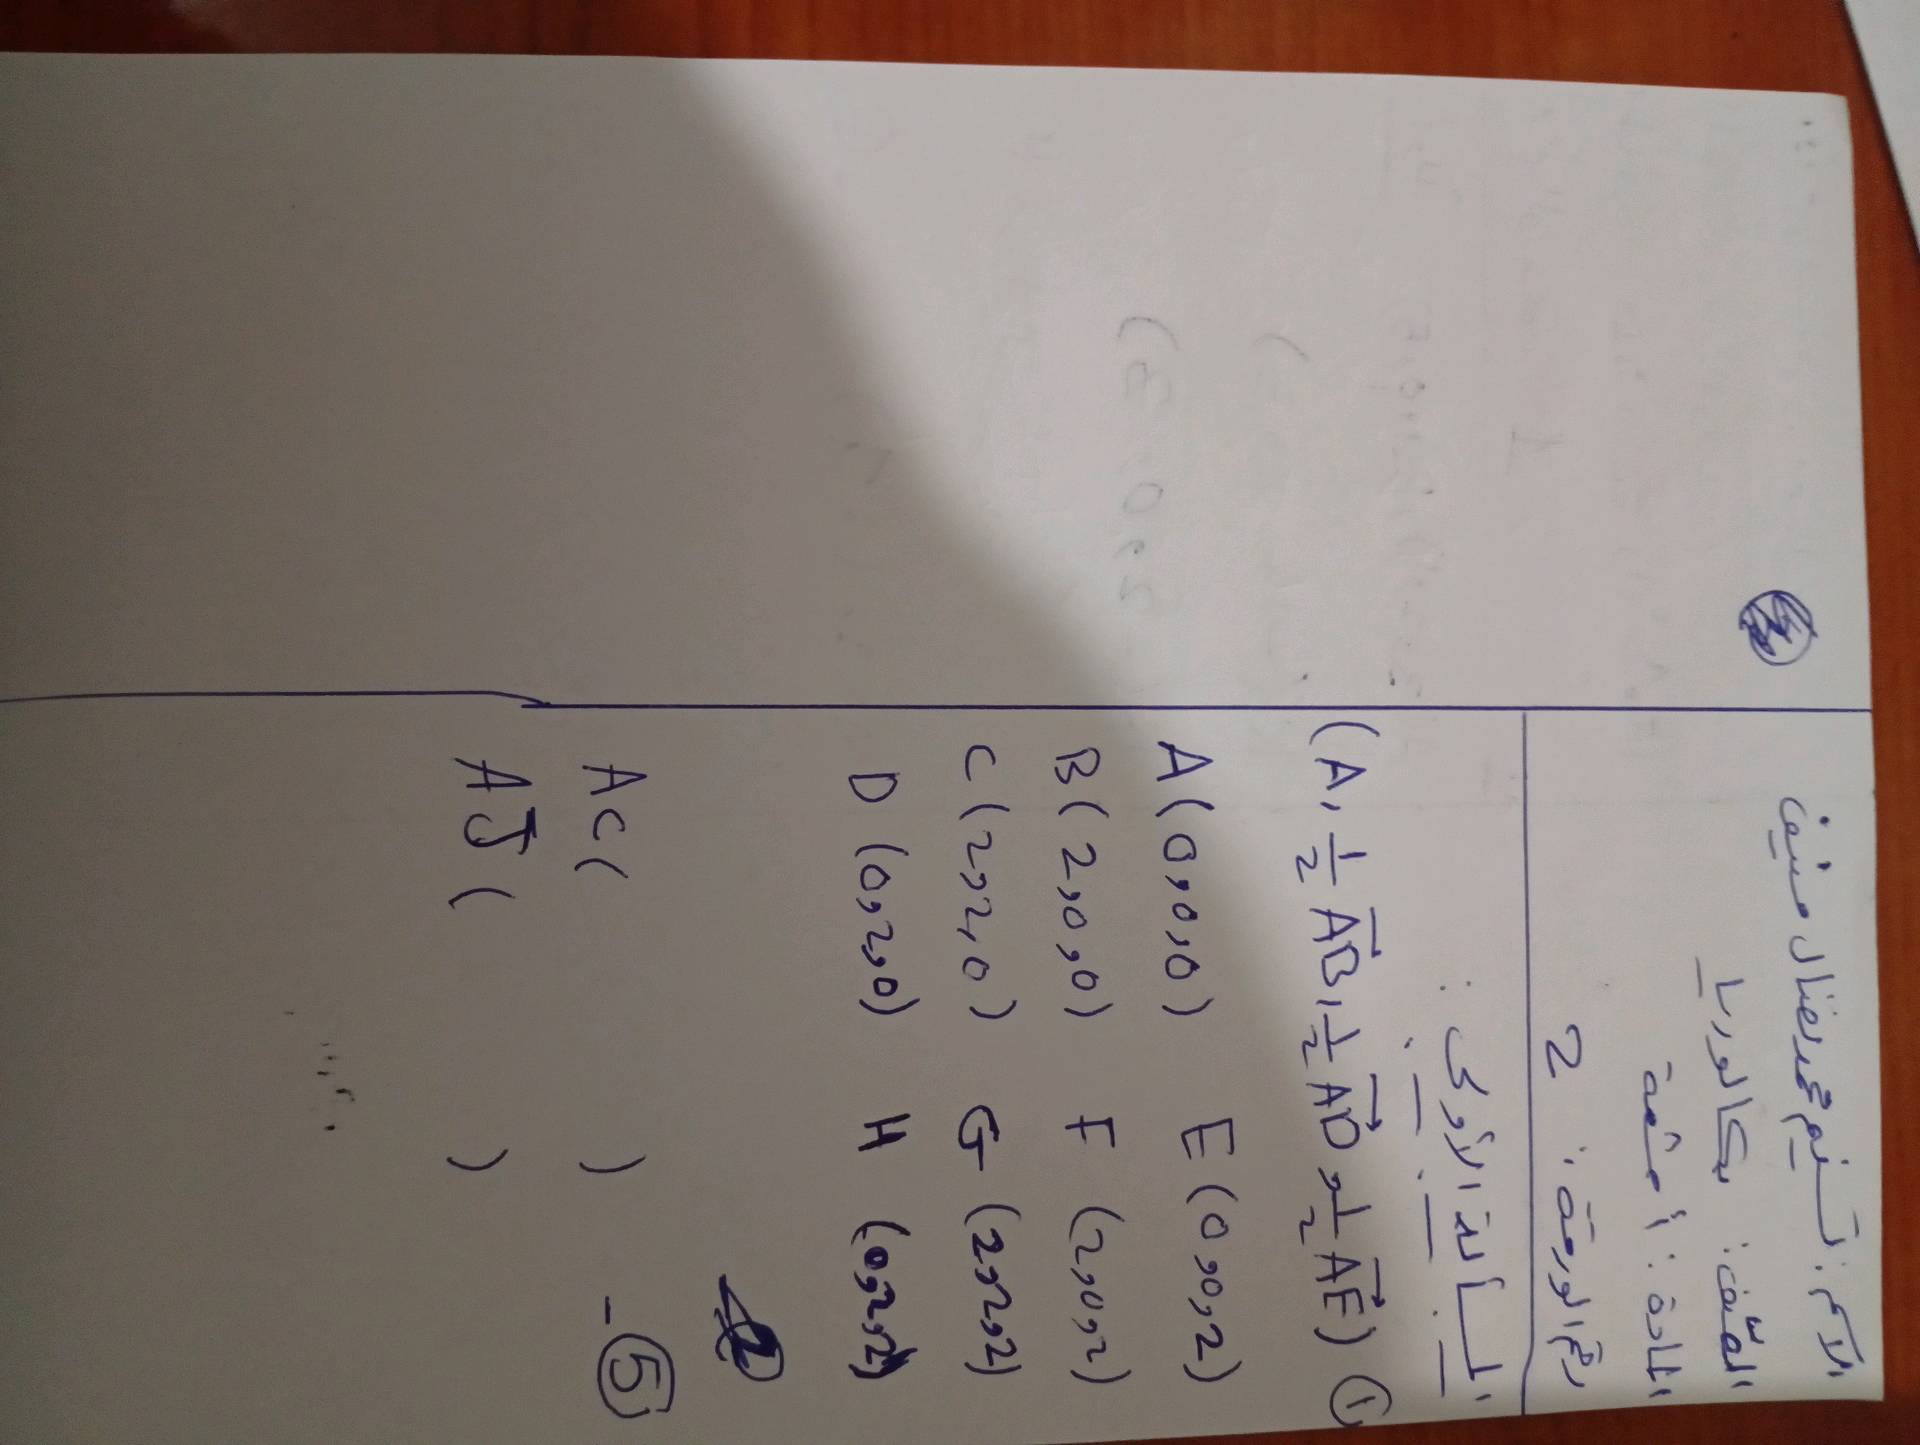 الاسم: تسنيم محمد نضال منيف
الصّف: بكالوريا
المادة: أ متعة
رقم الورقة: 2
المسألة الأولى:
① (A, 1/2 AB, 1/2 AD و 1/2 AE)
A(0,0,0) E(0,0,2)
B(2,0,0) F(2,0,2)
C(2,2,0) G(2,2,2)
D(0,2,0) H(0,2,2)
⑤- AC( )
AJ( )